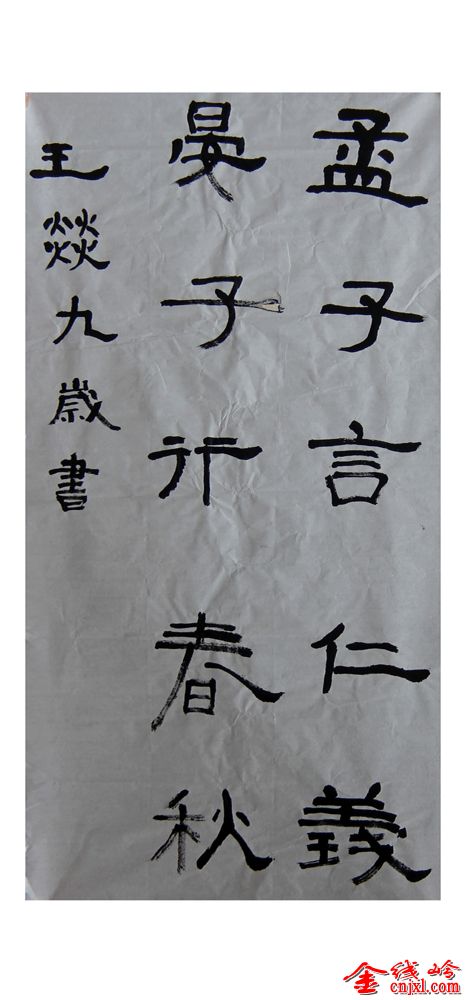 孟子言仁義
晏子行春秋
王燚九歲書
金线岭
cnjxl.com